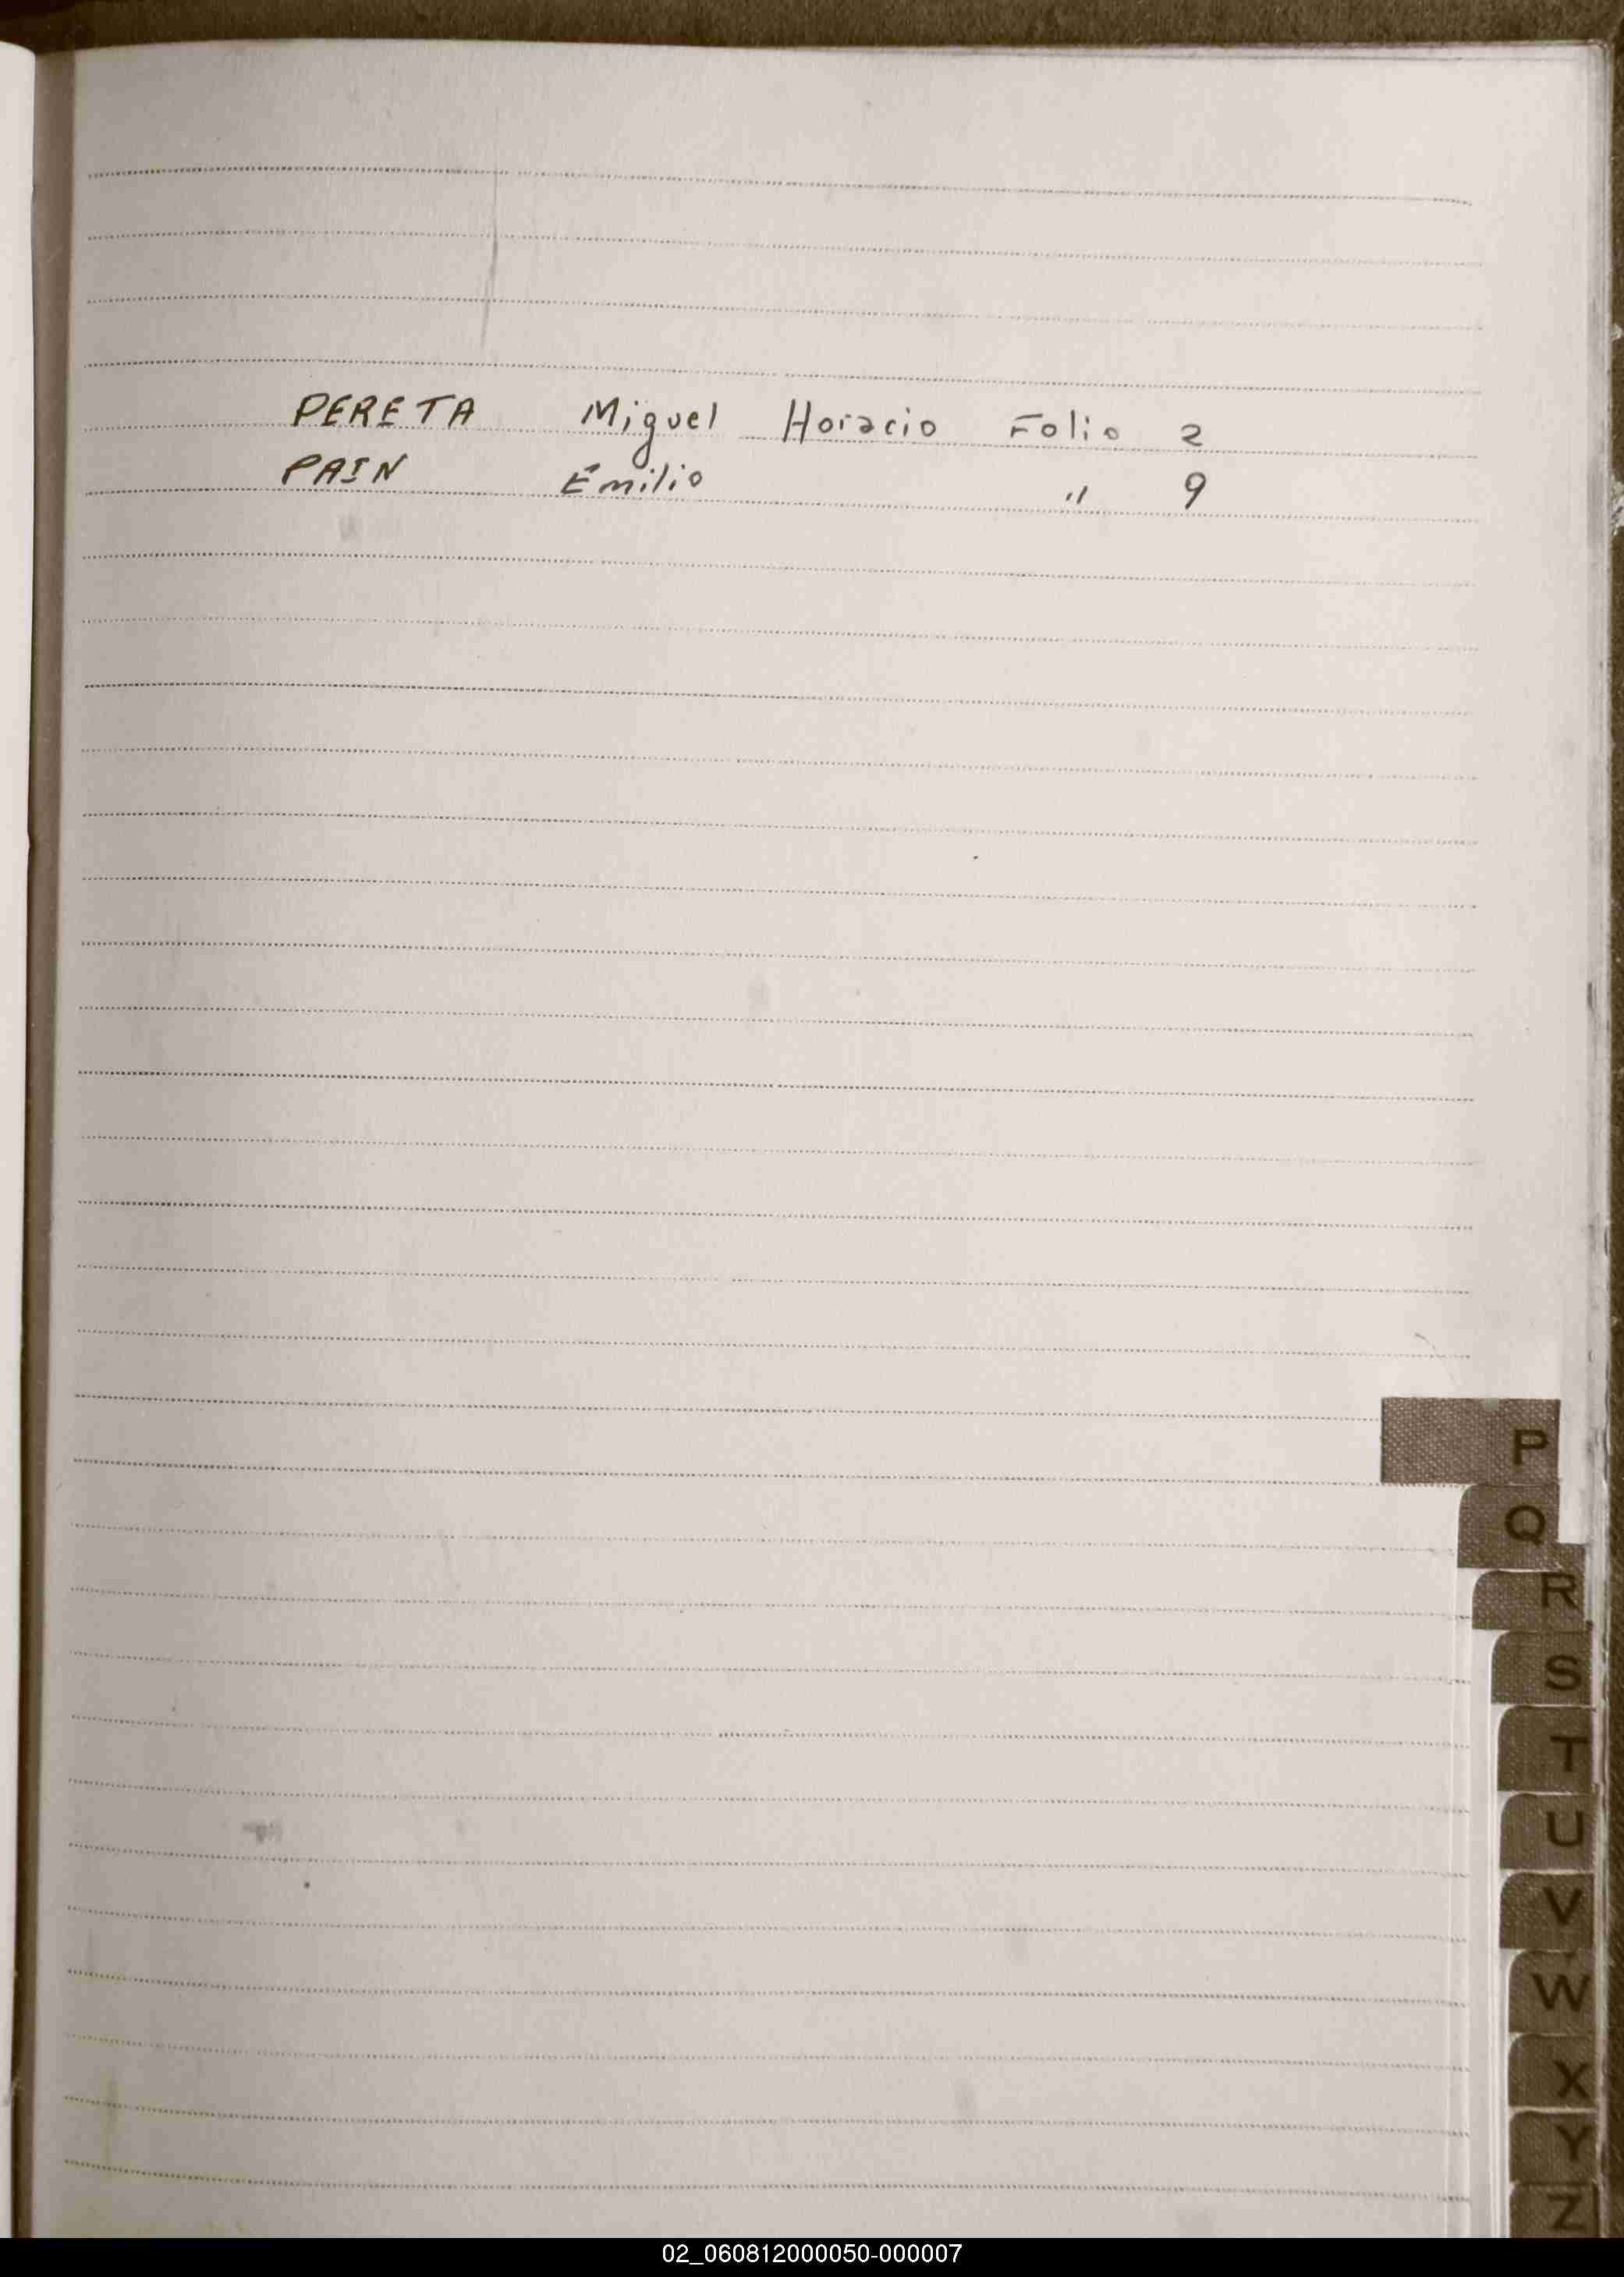 PERETA Miguel Horacio Folio 2
PAIN Emilio " 9
P
Q
R
S
T
U
V
W
X
Y
Z
02_060812000050-000007